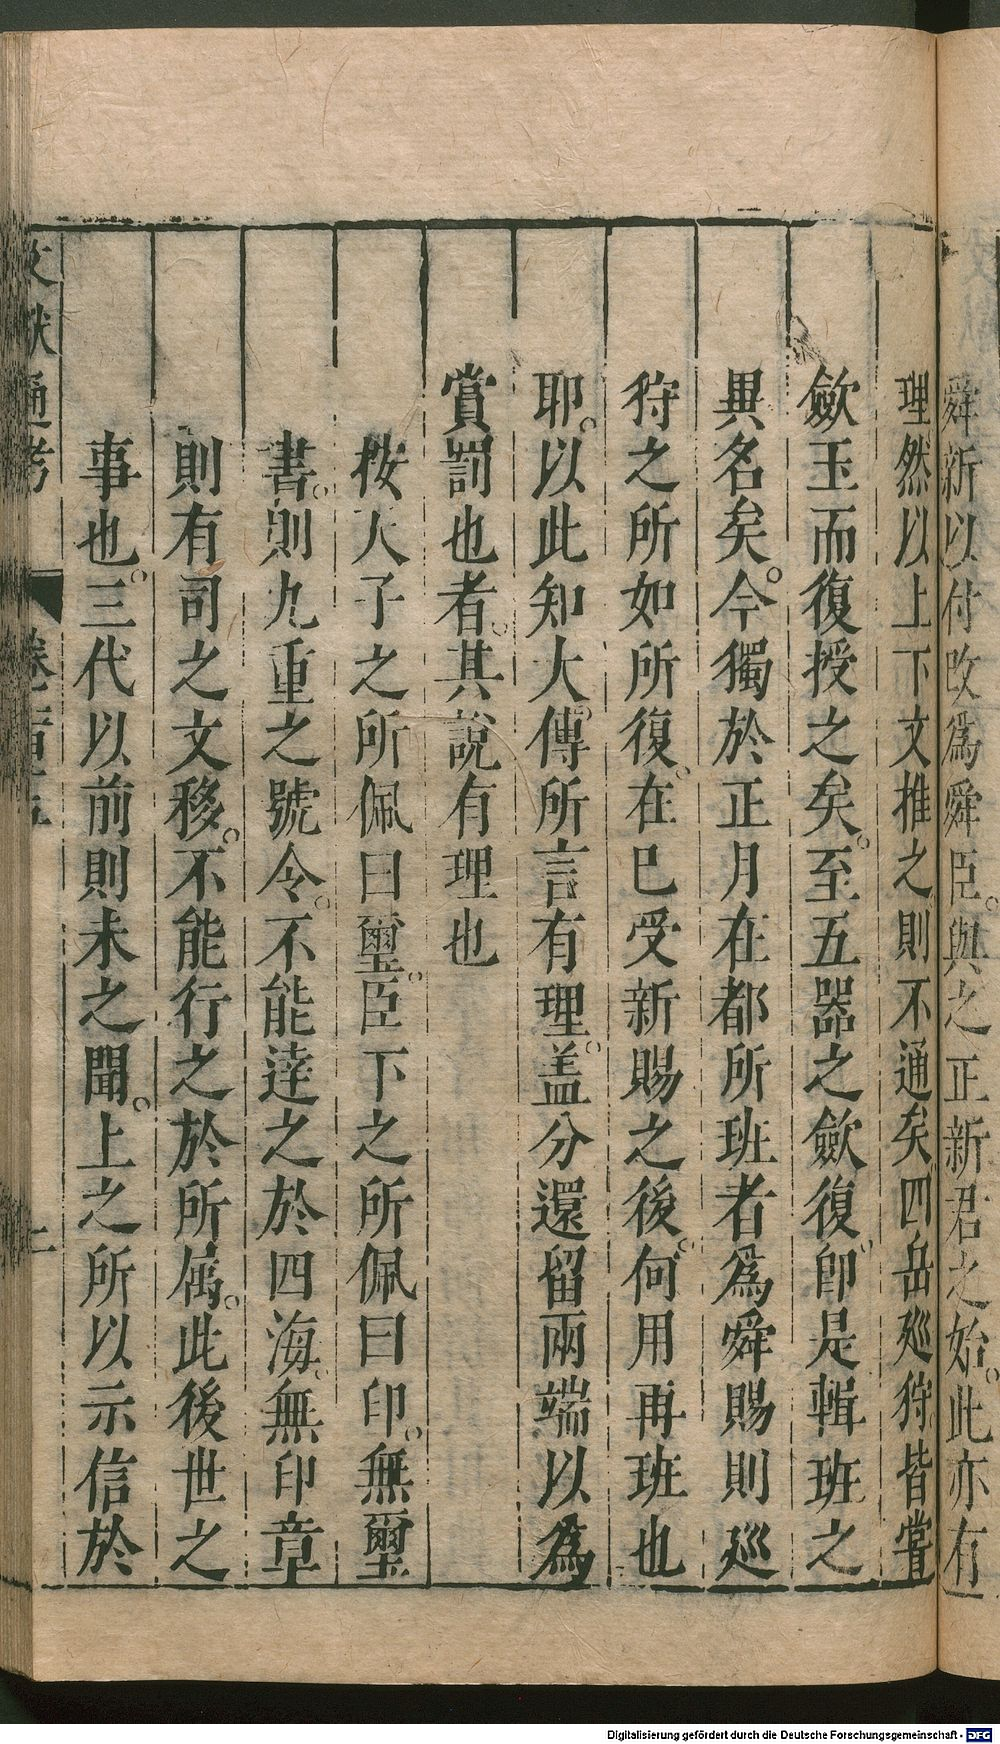 舜新以付改爲舜臣。與之正新君之始。此亦有
理然以上下文推之則不通矣四岳廵狩皆嘗
歛玉而復授之矣。至五器之歛復卽是輯班之
異名矣。今獨於正月在都所班者爲舜賜則廵
狩之所如所復。在已受新賜之後。何用再班也
耶。以此知大傳所言有理。盖分還留兩端以爲
賞罰也者。其說有理也
按人子之所佩曰璽。臣下之所佩曰印。無璽
書。則九重之號令。不能逹之於四海。無印章
則有司之文移。不能行之於所属。此後世之
事也。三代以前則未之聞。上之所以示信於
文獻通考 卷一百十五
Digitalisierung gefördert durch die Deutsche Forschungsgemeinschaft - DFG